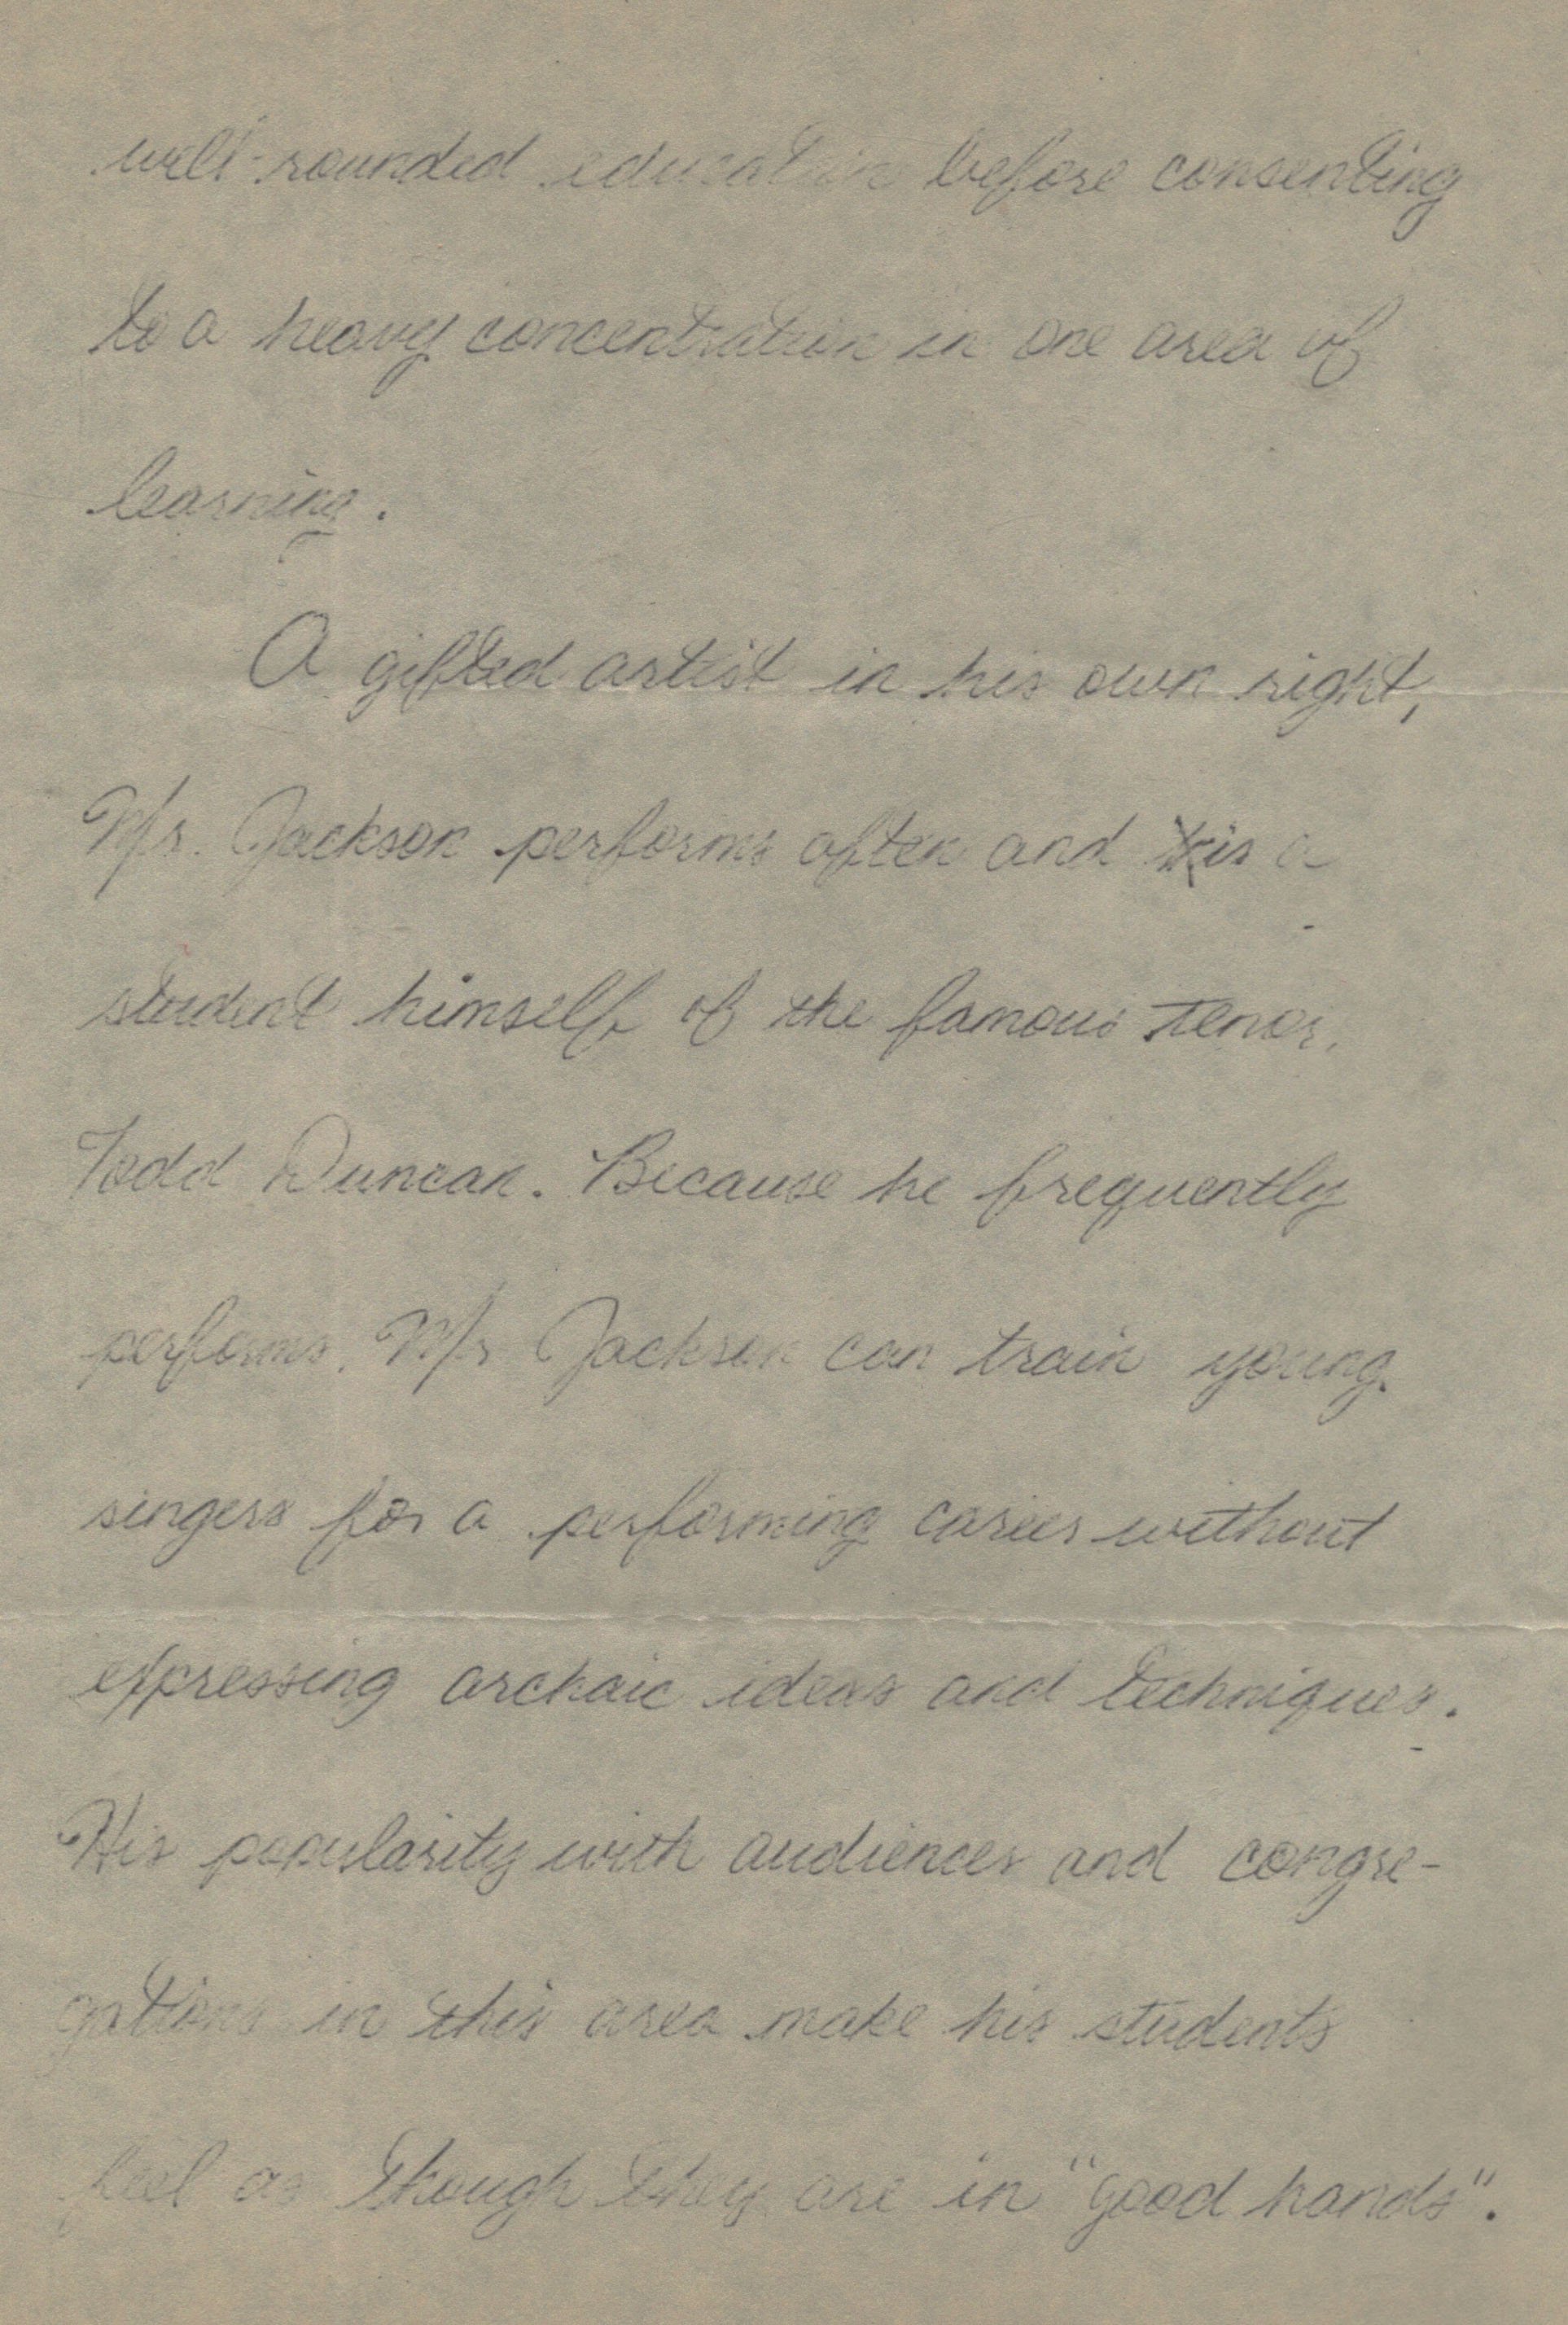 well-rounded education before consenting
to a heavy concentration in one area of
learning.
A gifted artist in his own right,
Mr. Jackson performs often and is a
student himself of the famous tenor,
Todd Duncan. Because he frequently
performs, Mr Jackson can train young
singers for a performing career without
expressing archaic ideas and techniques.
His popularity with audiences and congre-
gations in this area make his students
feel as though they are in "good hands".